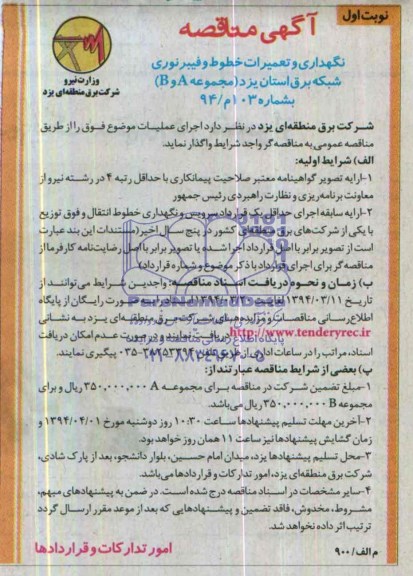 نوبت اول
آگهی مناقصه
وزارت نیرو
شرکت برق منطقه‌ای یزد
نگهداری و تعمیرات خطوط و فیبر نوری
شبکه برق استان یزد (مجموعه A و B)
بشماره ۱۰۳م/۹۴
شرکت برق منطقه‌ای یزد در نظر دارد اجرای عملیات موضوع فوق را از طریق
مناقصه عمومی به مناقصه گر واجد شرایط واگذار نماید.
الف) شرایط اولیه:
۱-ارایه تصویر گواهینامه معتبر صلاحیت پیمانکاری با حداقل رتبه ۴ در رشته نیرو از
معاونت برنامه‌ریزی و نظارت راهبردی رئیس جمهور
۲-ارایه سابقه اجرای حداقل یک قرارداد سرویس و نگهداری خطوط انتقال و فوق توزیع
با یکی از شرکت‌های برق منطقه‌ای کشور در پنج سال اخیر (مستندات این بند عبارت
است از تصویر برابر با اصل قرارداد اجرا شده یا تصویر برابر با اصل رضایت‌نامه کارفرما از
مناقصه گر برای اجرای قرارداد با ذکر موضوع و شماره قرارداد)
ب) زمان و نحوه دریافت اسناد مناقصه: واجدین شرایط می‌توانند از
تاریخ ۱۳۹۴/۰۳/۱۱ لغایت اسناد را بصورت رایگان از پایگاه
اطلاع رسانی مناقصات و مزایده‌های شرکت برق منطقه‌ای یزد به نشانی
http://www.tenderyrec.ir دریافت نمایند و در صورت عدم امکان دریافت
اسناد، مراتب را در ساعات اداری از طریق تلفن پیگیری نمایند.
پ) بعضی از شرایط مناقصه عبارتند از:
۱-مبلغ تضمین شرکت در مناقصه برای مجموعه A ۳۵۰,۰۰۰,۰۰۰ ریال و برای
مجموعه B ۳۵۰,۰۰۰,۰۰۰ ریال می‌باشد.
۲-آخرین مهلت تسلیم پیشنهادها ساعت ۱۰:۳۰ روز دوشنبه مورخ ۱۳۹۴/۰۴/۰۱ و
زمان گشایش پیشنهادها نیز ساعت ۱۱ همان روز خواهد بود.
۳-محل تسلیم پیشنهادها یزد، میدان امام حسین، بلوار دانشجو، بعد از پارک شادی،
شرکت برق منطقه‌ای یزد، امور تدارکات و قراردادها می‌باشد.
۴-سایر مشخصات در اسناد مناقصه درج شده است. در ضمن به پیشنهادهای مبهم،
مشروط، مخدوش، فاقد تضمین و پیشنهادهایی که بعد از موعد مقرر ارسال گردد
ترتیب اثر داده نخواهد شد.
م الف/۹۰۰
امور تدارکات و قراردادها